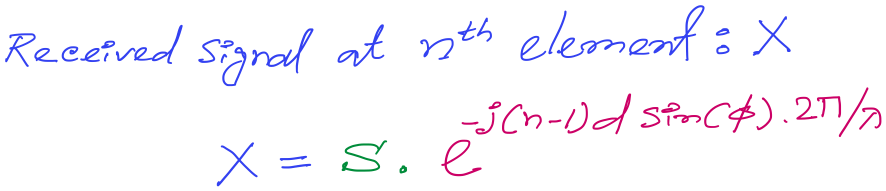 Received signal at nth element: X
X = S. e^-j(n-1)d sin(ϕ).2π/λ